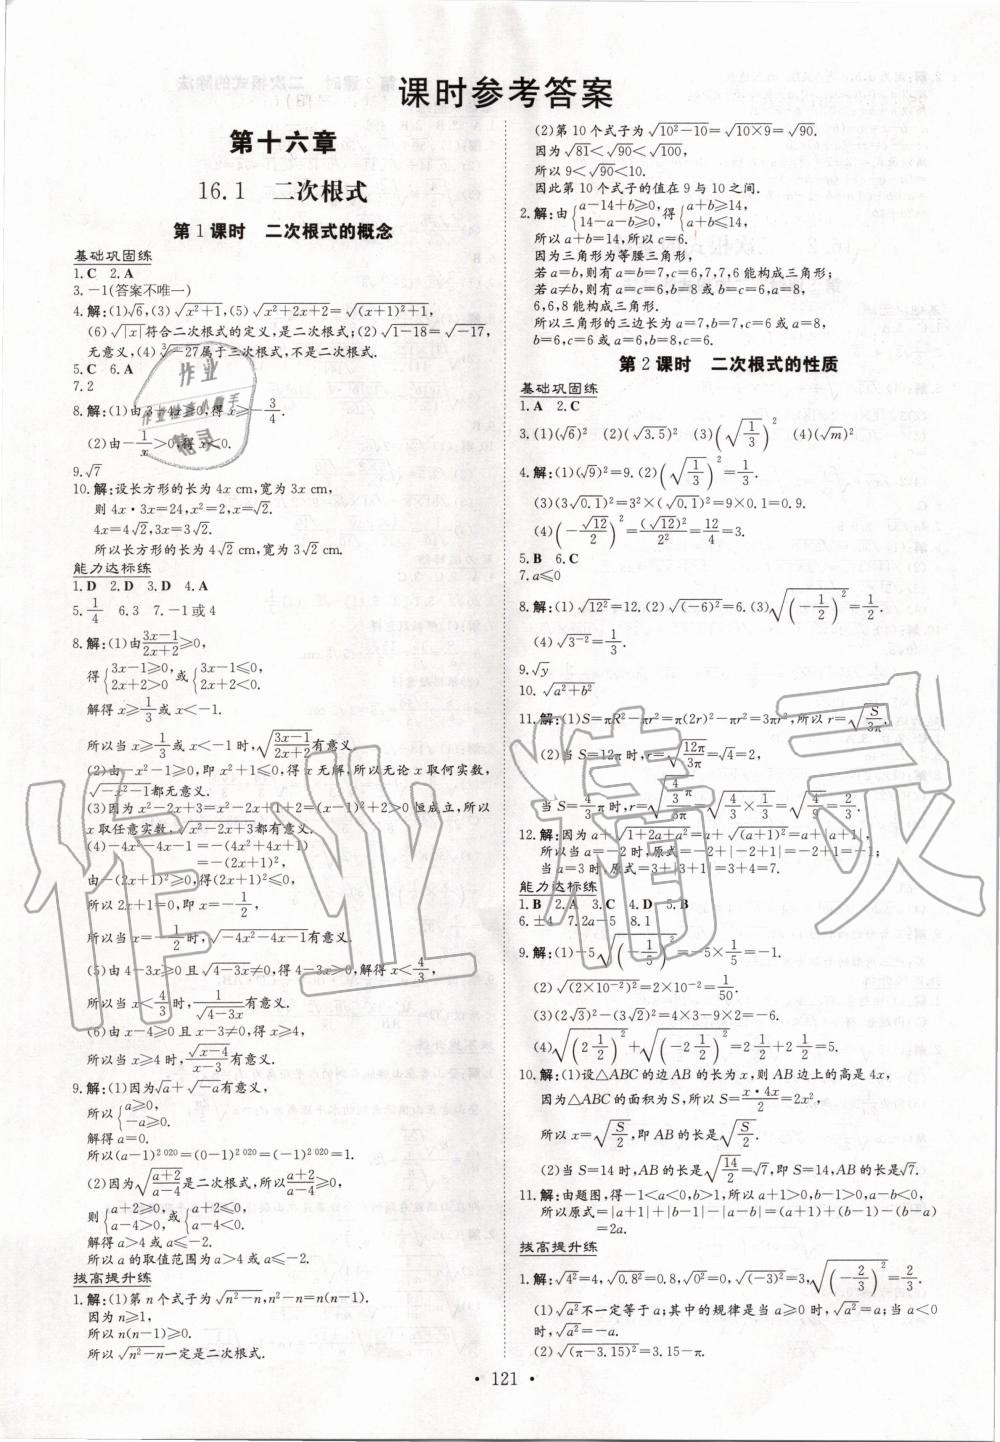 课时参考答案
第十六章
16.1 二次根式
第1课时 二次根式的概念
基础巩固练
1.C 2.A
3.-1(答案不唯一)
4.解:(1)√6,(3)√(x²+1),(5)√(x²+2x+2)=√((x+1)²+1),
(6)√|x|符合二次根式的定义,是二次根式;(2)√(1-18)=√-17,
无意义,(4)∛-27属于三次根式,不是二次根式.
5.C 6.A
7.2
8.解:(1)由3+4x≥0,得x≥-3/4.
(2)由-1/x>0,得x<0.
9.√7
10.解:设长方形的长为4x cm,宽为3x cm,
则4x·3x=24,x²=2,x=√2.
4x=4√2,3x=3√2.
所以长方形的长为4√2 cm,宽为3√2 cm.
能力达标练
1.D 2.D 3.D 4.A
5.1/4 6.3 7.-1或4
8.解:(1)由(3x-1)/(2x+2)≥0,
得{3x-1≥0,2x+2>0或{3x-1≤0,2x+2<0.
解得x≥1/3或x<-1.
所以当x≥1/3或x<-1时,√((3x-1)/(2x+2))有意义.
(2)由-x²-1≥0,即x²+1≤0,得x无解,所以无论x取何实数,
√(-x²-1)都无意义.
(3)因为x²-2x+3=x²-2x+1+2=(x-1)²+2>0恒成立,所以
x取任意实数,√(x²-2x+3)都有意义.
(4)-4x²-4x-1=-(4x²+4x+1)
=-(2x+1)²,
由-(2x+1)²≥0,得(2x+1)²≤0,
所以2x+1=0,即x=-1/2,
所以当x=-1/2时,√(-4x²-4x-1)有意义.
(5)由4-3x≥0且√(4-3x)≠0,得4-3x>0,解得x<4/3,
所以当x<4/3时,1/√(4-3x)有意义.
(6)由x-4≥0且x-3≠0,得x≥4,
所以当x≥4时,√(x-4)/(x-3)有意义.
9.解:(1)因为√a+√-a有意义,
所以{a≥0,-a≥0.
解得a=0.
所以(a-1)²⁰²⁰=(0-1)²⁰²⁰=(-1)²⁰²⁰=1.
(2)因为√((a+2)/(a-4))是二次根式,所以(a+2)/(a-4)≥0,
则{a+2≥0,a-4>0,或{a+2≤0,a-4<0.
解得a>4或a≤-2.
所以a的取值范围为a>4或a≤-2.
拔高提升练
1.解:(1)第n个式子为√(n²-n),n²-n=n(n-1).
因为n≥1,
所以n(n-1)≥0.
所以√(n²-n)一定是二次根式.
(2)第10个式子为√(10²-10)=√(10×9)=√90.
因为√81<√90<√100,
所以9<√90<10.
因此第10个式子的值在9与10之间.
2.解:由{a-14+b≥0,14-a-b≥0,得{a+b≥14,a+b≤14,
所以a+b=14,所以c=6.
因为三角形为等腰三角形,
若a=b,则有a=b=7,c=6,7,7,6能构成三角形;
若a≠b,则有a=c=6,b=8或b=c=6,a=8,
6,6,8能构成三角形.
所以三角形的三边长为a=7,b=7,c=6或a=8,
b=6,c=6或b=8,a=6,c=6.
第2课时 二次根式的性质
基础巩固练
1.A 2.C
3.(1)(√6)² (2)(√3.5)² (3)(√(1/3))² (4)(√m)²
4.解:(1)(√9)²=9.(2)(√(1/3))²=1/3.
(3)(3√0.1)²=3²×(√0.1)²=9×0.1=0.9.
(4)(-√12/2)²=(√12)²/2²=12/4=3.
5.B 6.C
7.a≤0
8.解:(1)√12²=12.(2)√(-6)²=6.(3)√(-1/2)²=1/2.
(4)√3⁻²=1/3.
9.√y
10.√(a²+b²)
11.解:(1)S=πR²-πr²=π(2r)²-πr²=3πr²,所以r=√(S/3π).
(2)当S=12π时,r=√(12π/3π)=√4=2,
当S=4/3π时,r=√(4/3π/3π)=√(4/3×1/3)=√(4/9)=2/3.
12.解:因为a+√(1+2a+a²)=a+√(a+1)²=a+|a+1|,
所以当a=-2时,原式=-2+|-2+1|=-2+1=-1;
当a=3时,原式=3+|3+1|=3+4=7.
能力达标练
1.B 2.A 3.C 4.D 5.B
6.±4 7.2a-5 8.1
9.解:(1)-5√(-1/5)²=-5×1/5=-1.
(2)√(2×10⁻²)²=2×10⁻²=1/50.
(3)(2√3)²-(3√2)²=4×3-9×2=-6.
(4)√(2 1/2)²+√(-2 1/2)²=2 1/2+2 1/2=5.
10.解:(1)设△ABC的边AB的长为x,则AB边上的高是4x,
因为△ABC的面积为S,所以S=x·4x/2=2x²,
所以x=√(S/2),即AB的长是√(S/2).
(2)当S=14时,AB的长是√(14/2)=√7,即S=14,AB的长是√7.
11.解:由题图,得-1<a<0,b>1,所以a+1>0,b-1>0,a-b<0,
所以原式=|a+1|+|b-1|-|a-b|=(a+1)+(b-1)-(b-a)
=2a.
拔高提升练
1.解:√4²=4,√0.8²=0.8,√0²=0,√(-3)²=3,√(-2/3)²=2/3.
(1)√a²不一定等于a;其中的规律是当a≥0时,√a²=a;当a<0
时,√a²=-a.
(2)√(π-3.15)²=3.15-π.
·121·
作业精灵
作业检查小助手